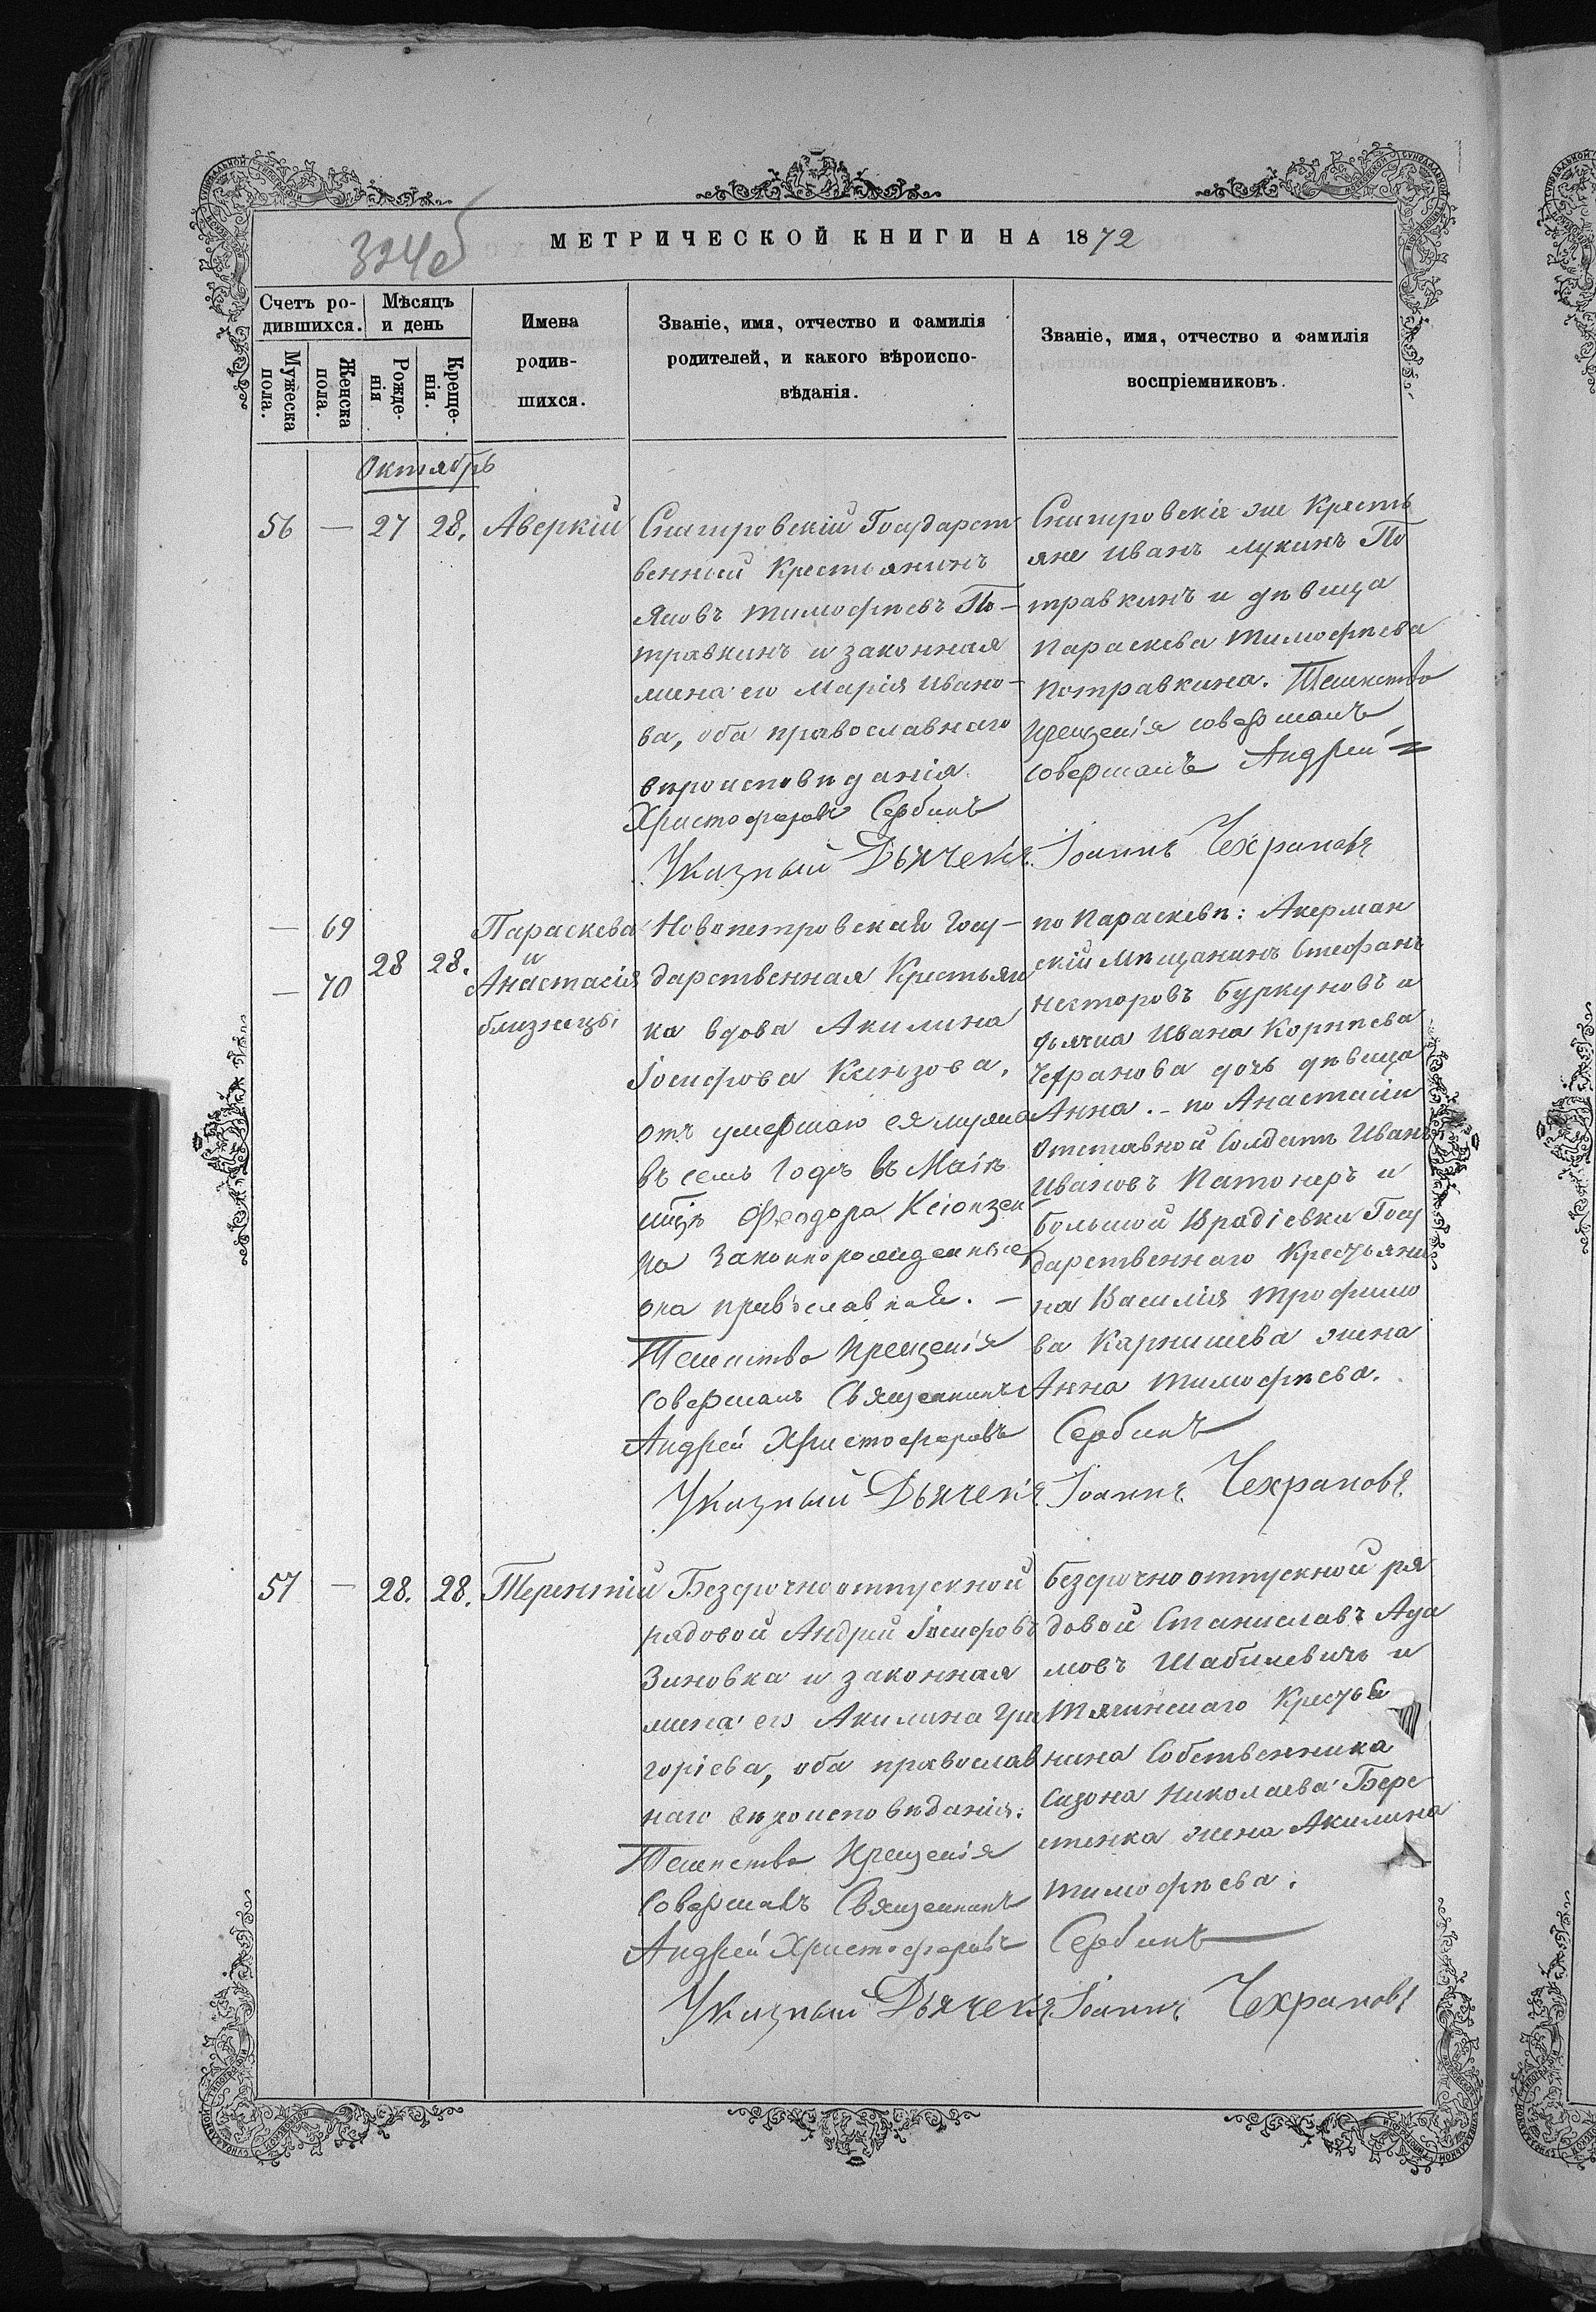 324об
МЕТРИЧЕСКОЙ КНИГИ НА 1872
Счетъ ро-
дившихся.
Мужеска
пола.
Женска
пола.
Мѣсяцъ
и день
Рожде-
нія
Креще-
нія.
Имена
родив-
шихся.
Званіе, имя, отчество и фамилія
родителей, и какого вѣроиспо-
вѣданія.
Званіе, имя, отчество и фамилія
воспріемниковъ.
Октябрь
56 — 27 28. Аверкій
Снигировскій Государст
венный Крестьянинъ
Яковъ Тимофѣевъ По-
травкинъ и законная
жена его Марія Ивано-
ва, оба православнаго
вѣроисповѣданія.
Снигировскіе же Кресть
яне Иванъ Лукинъ По
травкинъ и дѣвица
Параскева Тимофѣева
Потравкина. Таинство
Крещенія совершалъ
совершалъ Андрей
Христофоровъ Сербинъ
Указный Дьячекъ Іоаннъ Чехрановъ
— 69
— 70
28 28.
Параскева
и
Анастасія
близнецы
Новопетровская Госу-
дарственная Крестьян
ка вдова Акилина
Іосифова
отъ умершаго ея мужа
въ семъ годѣ въ Маѣ
м-цѣ Феодора
на законнорожденные
она православная. —
Таинство Крещенія
Совершалъ Священникъ
Андрей Христофоровъ Сербинъ
по Параскевѣ: Акерман
скій Мѣщанинъ Стефанъ
Несторовъ Буркуновъ и
дьячка Ивана Корнѣева
Чехранова дочь дѣвица
Анна. — по Анастасіи
Отставной Солдатъ Иванъ
Ивановъ и
Большой Врадіевки Госу
дарственнаго Крестьяни
на Василія Трофимо
ва жена
Анна Тимофѣева.
Указный Дьячекъ Іоаннъ Чехрановъ
57 — 28. 28. Терентій
Безсрочноотпускной
рядовой Андрей Іосифовъ
Зиновка и законная
жена его Акилина Гри
горіева, оба православ
наго вѣроисповѣданія.
Таинство Крещенія
Совершалъ Священникъ
Андрей Христофоровъ Сербинъ
безсрочноотпускной ря
довой Станиславъ Ада
мовъ Шабилевичъ и
Тягинскаго Крестья
нина Собственника
Сазона Николаева Бере
стенка жена Акилина
Тимофѣева.
Указный Дьячекъ Іоаннъ Чехрановъ